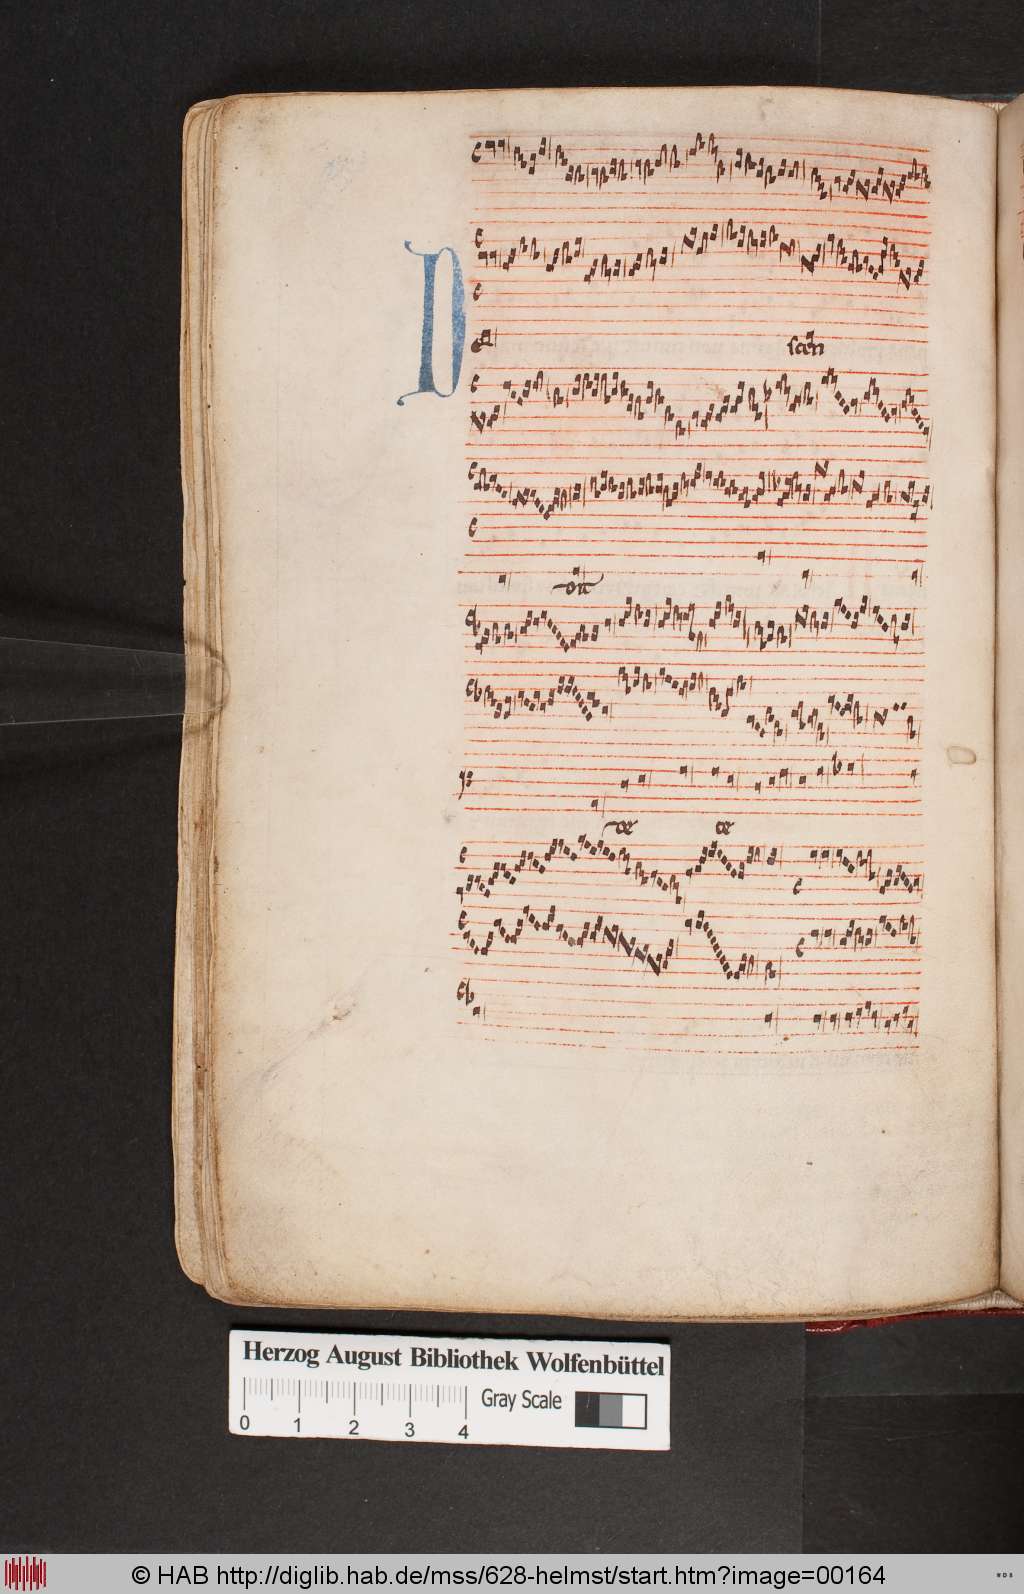 D
scen
dit
ce
te
Herzog August Bibliothek Wolfenbüttel
Gray Scale
0 1 2 3 4
© HAB http://diglib.hab.de/mss/628-helmst/start.htm?image=00164